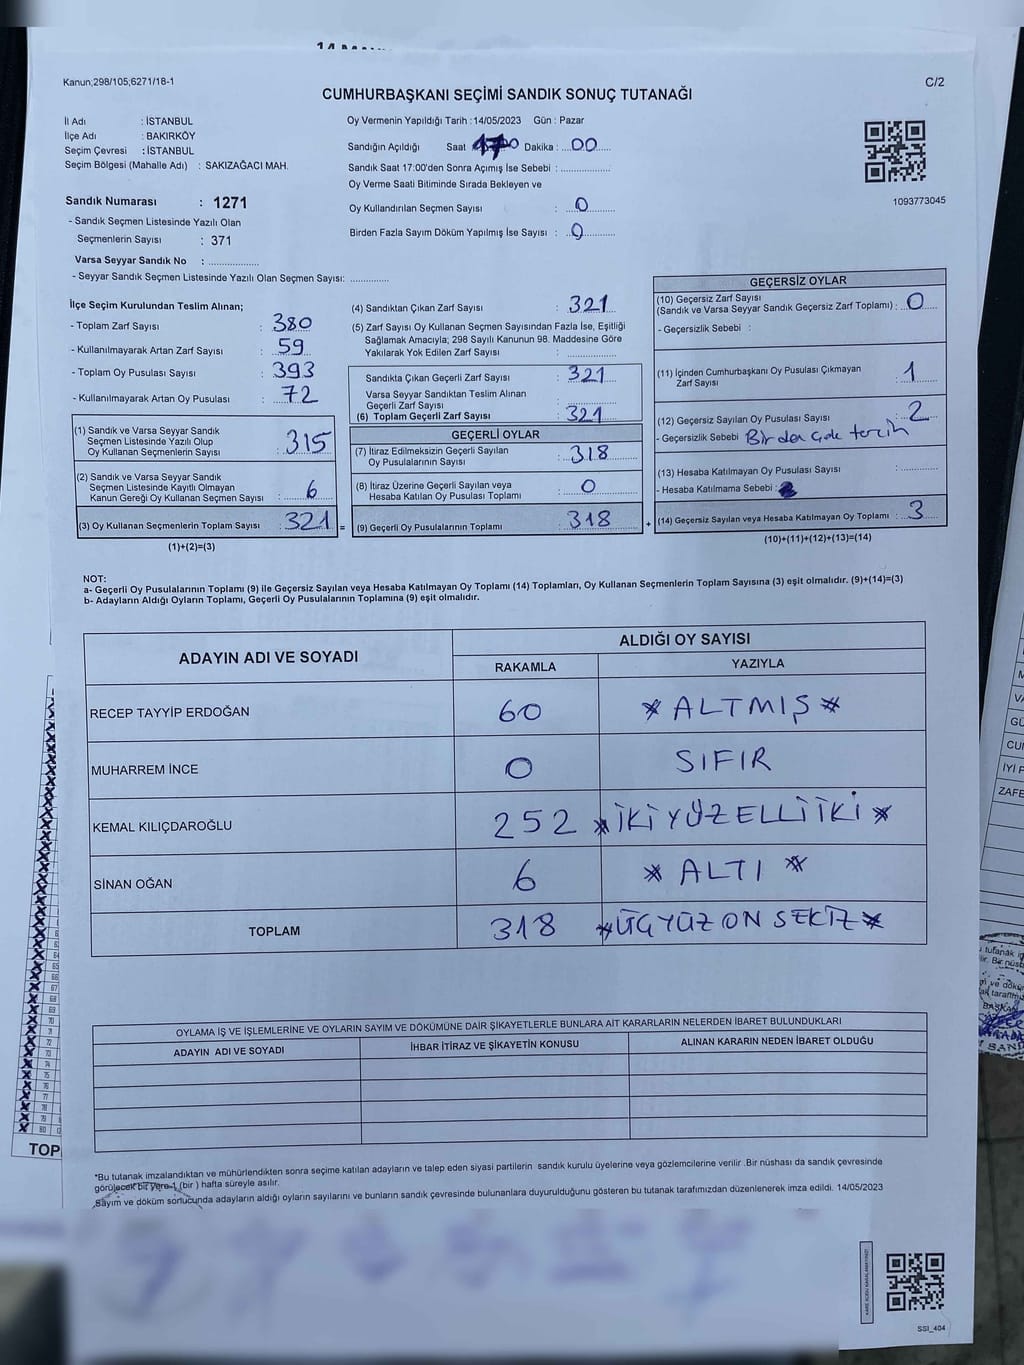 Kanun;298/105;6271/18-1
C/2
CUMHURBAŞKANI SEÇİMİ SANDIK SONUÇ TUTANAĞI
İl Adı : İSTANBUL
İlçe Adı : BAKIRKÖY
Seçim Çevresi : İSTANBUL
Seçim Bölgesi (Mahalle Adı) : SAKIZAĞACI MAH.
Sandık Numarası : 1271
- Sandık Seçmen Listesinde Yazılı Olan
Seçmenlerin Sayısı : 371
Varsa Seyyar Sandık No : ..................
- Seyyar Sandık Seçmen Listesinde Yazılı Olan Seçmen Sayısı: ..............
Oy Vermenin Yapıldığı Tarih :14/05/2023 Gün : Pazar
Sandığın Açıldığı Saat 17 00 Dakika : 00
Sandık Saat 17:00'den Sonra Açımış İse Sebebi : ..................
Oy Verme Saati Bitiminde Sırada Bekleyen ve
Oy Kullandırılan Seçmen Sayısı : 0
Birden Fazla Sayım Döküm Yapılmış İse Sayısı : 0
1093773045
İlçe Seçim Kurulundan Teslim Alınan;
- Toplam Zarf Sayısı : 380
- Kullanılmayarak Artan Zarf Sayısı : 59
- Toplam Oy Pusulası Sayısı : 393
- Kullanılmayarak Artan Oy Pusulası : 72
(1) Sandık ve Varsa Seyyar Sandık
Seçmen Listesinde Yazılı Olup
Oy Kullanan Seçmenlerin Sayısı : 315
(2) Sandık ve Varsa Seyyar Sandık
Seçmen Listesinde Kayıtlı Olmayan
Kanun Gereği Oy Kullanan Seçmen Sayısı : 6
(3) Oy Kullanan Seçmenlerin Toplam Sayısı : 321 =
(1)+(2)=(3)
(4) Sandıktan Çıkan Zarf Sayısı : 321
(5) Zarf Sayısı Oy Kullanan Seçmen Sayısından Fazla İse, Eşitliği
Sağlamak Amacıyla; 298 Sayılı Kanunun 98. Maddesine Göre
Yakılarak Yok Edilen Zarf Sayısı : ..............
Sandıkta Çıkan Geçerli Zarf Sayısı : 321
Varsa Seyyar Sandıktan Teslim Alınan
Geçerli Zarf Sayısı : ..............
(6) Toplam Geçerli Zarf Sayısı : 321
GEÇERLİ OYLAR
(7) İtiraz Edilmeksizin Geçerli Sayılan
Oy Pusulalarının Sayısı : 318
(8) İtiraz Üzerine Geçerli Sayılan veya
Hesaba Katılan Oy Pusulası Toplamı : 0
(9) Geçerli Oy Pusulalarının Toplamı : 318 +
GEÇERSİZ OYLAR
(10) Geçersiz Zarf Sayısı
(Sandık ve Varsa Seyyar Sandık Geçersiz Zarf Toplamı) : 0
- Geçersizlik Sebebi :
(11) İçinden Cumhurbaşkanı Oy Pusulası Çıkmayan
Zarf Sayısı : 1
(12) Geçersiz Sayılan Oy Pusulası Sayısı : 2
- Geçersizlik Sebebi Birden çok tercih
(13) Hesaba Katılmayan Oy Pusulası Sayısı : ..............
- Hesaba Katılmama Sebebi :
(14) Geçersiz Sayılan veya Hesaba Katılmayan Oy Toplamı : 3
(10)+(11)+(12)+(13)=(14)
NOT:
a- Geçerli Oy Pusulalarının Toplamı (9) ile Geçersiz Sayılan veya Hesaba Katılmayan Oy Toplamı (14) Toplamları, Oy Kullanan Seçmenlerin Toplam Sayısına (3) eşit olmalıdır. (9)+(14)=(3)
b- Adayların Aldığı Oyların Toplamı, Geçerli Oy Pusulalarının Toplamına (9) eşit olmalıdır.
ADAYIN ADI VE SOYADI ALDIĞI OY SAYISI
RAKAMLA YAZIYLA
RECEP TAYYİP ERDOĞAN 60 * ALTMIŞ *
MUHARREM İNCE 0 SIFIR
KEMAL KILIÇDAROĞLU 252 * İKİYÜZELLİİKİ *
SİNAN OĞAN 6 * ALTI *
TOPLAM 318 * ÜÇYÜZONSEKİZ *
OYLAMA İŞ VE İŞLEMLERİNE VE OYLARIN SAYIM VE DÖKÜMÜNE DAİR ŞİKAYETLERLE BUNLARA AİT KARARLARIN NELERDEN İBARET BULUNDUKLARI
ADAYIN ADI VE SOYADI İHBAR İTİRAZ VE ŞİKAYETİN KONUSU ALINAN KARARIN NEDEN İBARET OLDUĞU
*Bu tutanak imzalandıktan ve mühürlendikten sonra seçime katılan adayların ve talep eden siyasi partilerin sandık kurulu üyelerine veya gözlemcilerine verilir .Bir nüshası da sandık çevresinde
görülecek bir yere 1 (bir ) hafta süreyle asılır.
Sayım ve döküm sonucunda adayların aldığı oyların sayılarını ve bunların sandık çevresinde bulunanlara duyurulduğunu gösteren bu tutanak tarafımızdan düzenlenerek imza edildi. 14/05/2023
SSI_404
TOP